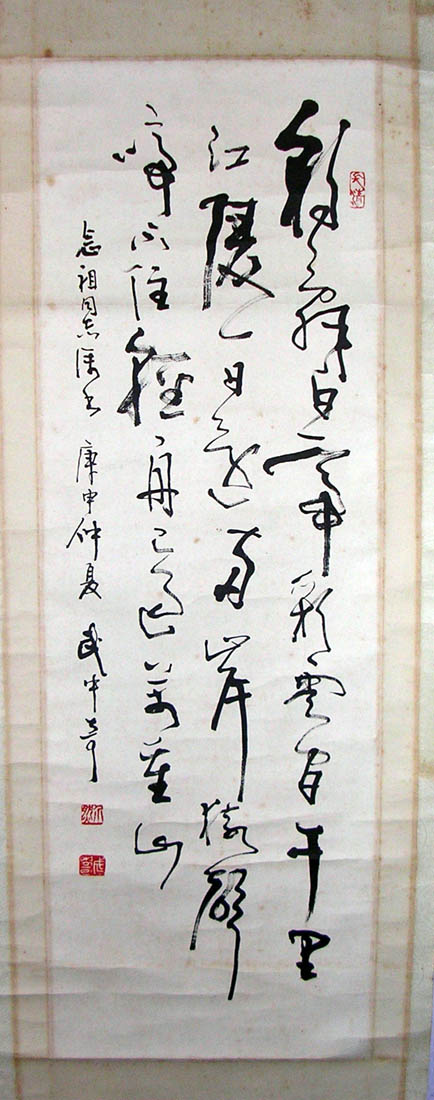 朝辭白帝彩雲間千里
江陵一日還兩岸猿聲
啼不住輕舟已過萬重山
念祖同志属书 庚申仲夏 武中奇